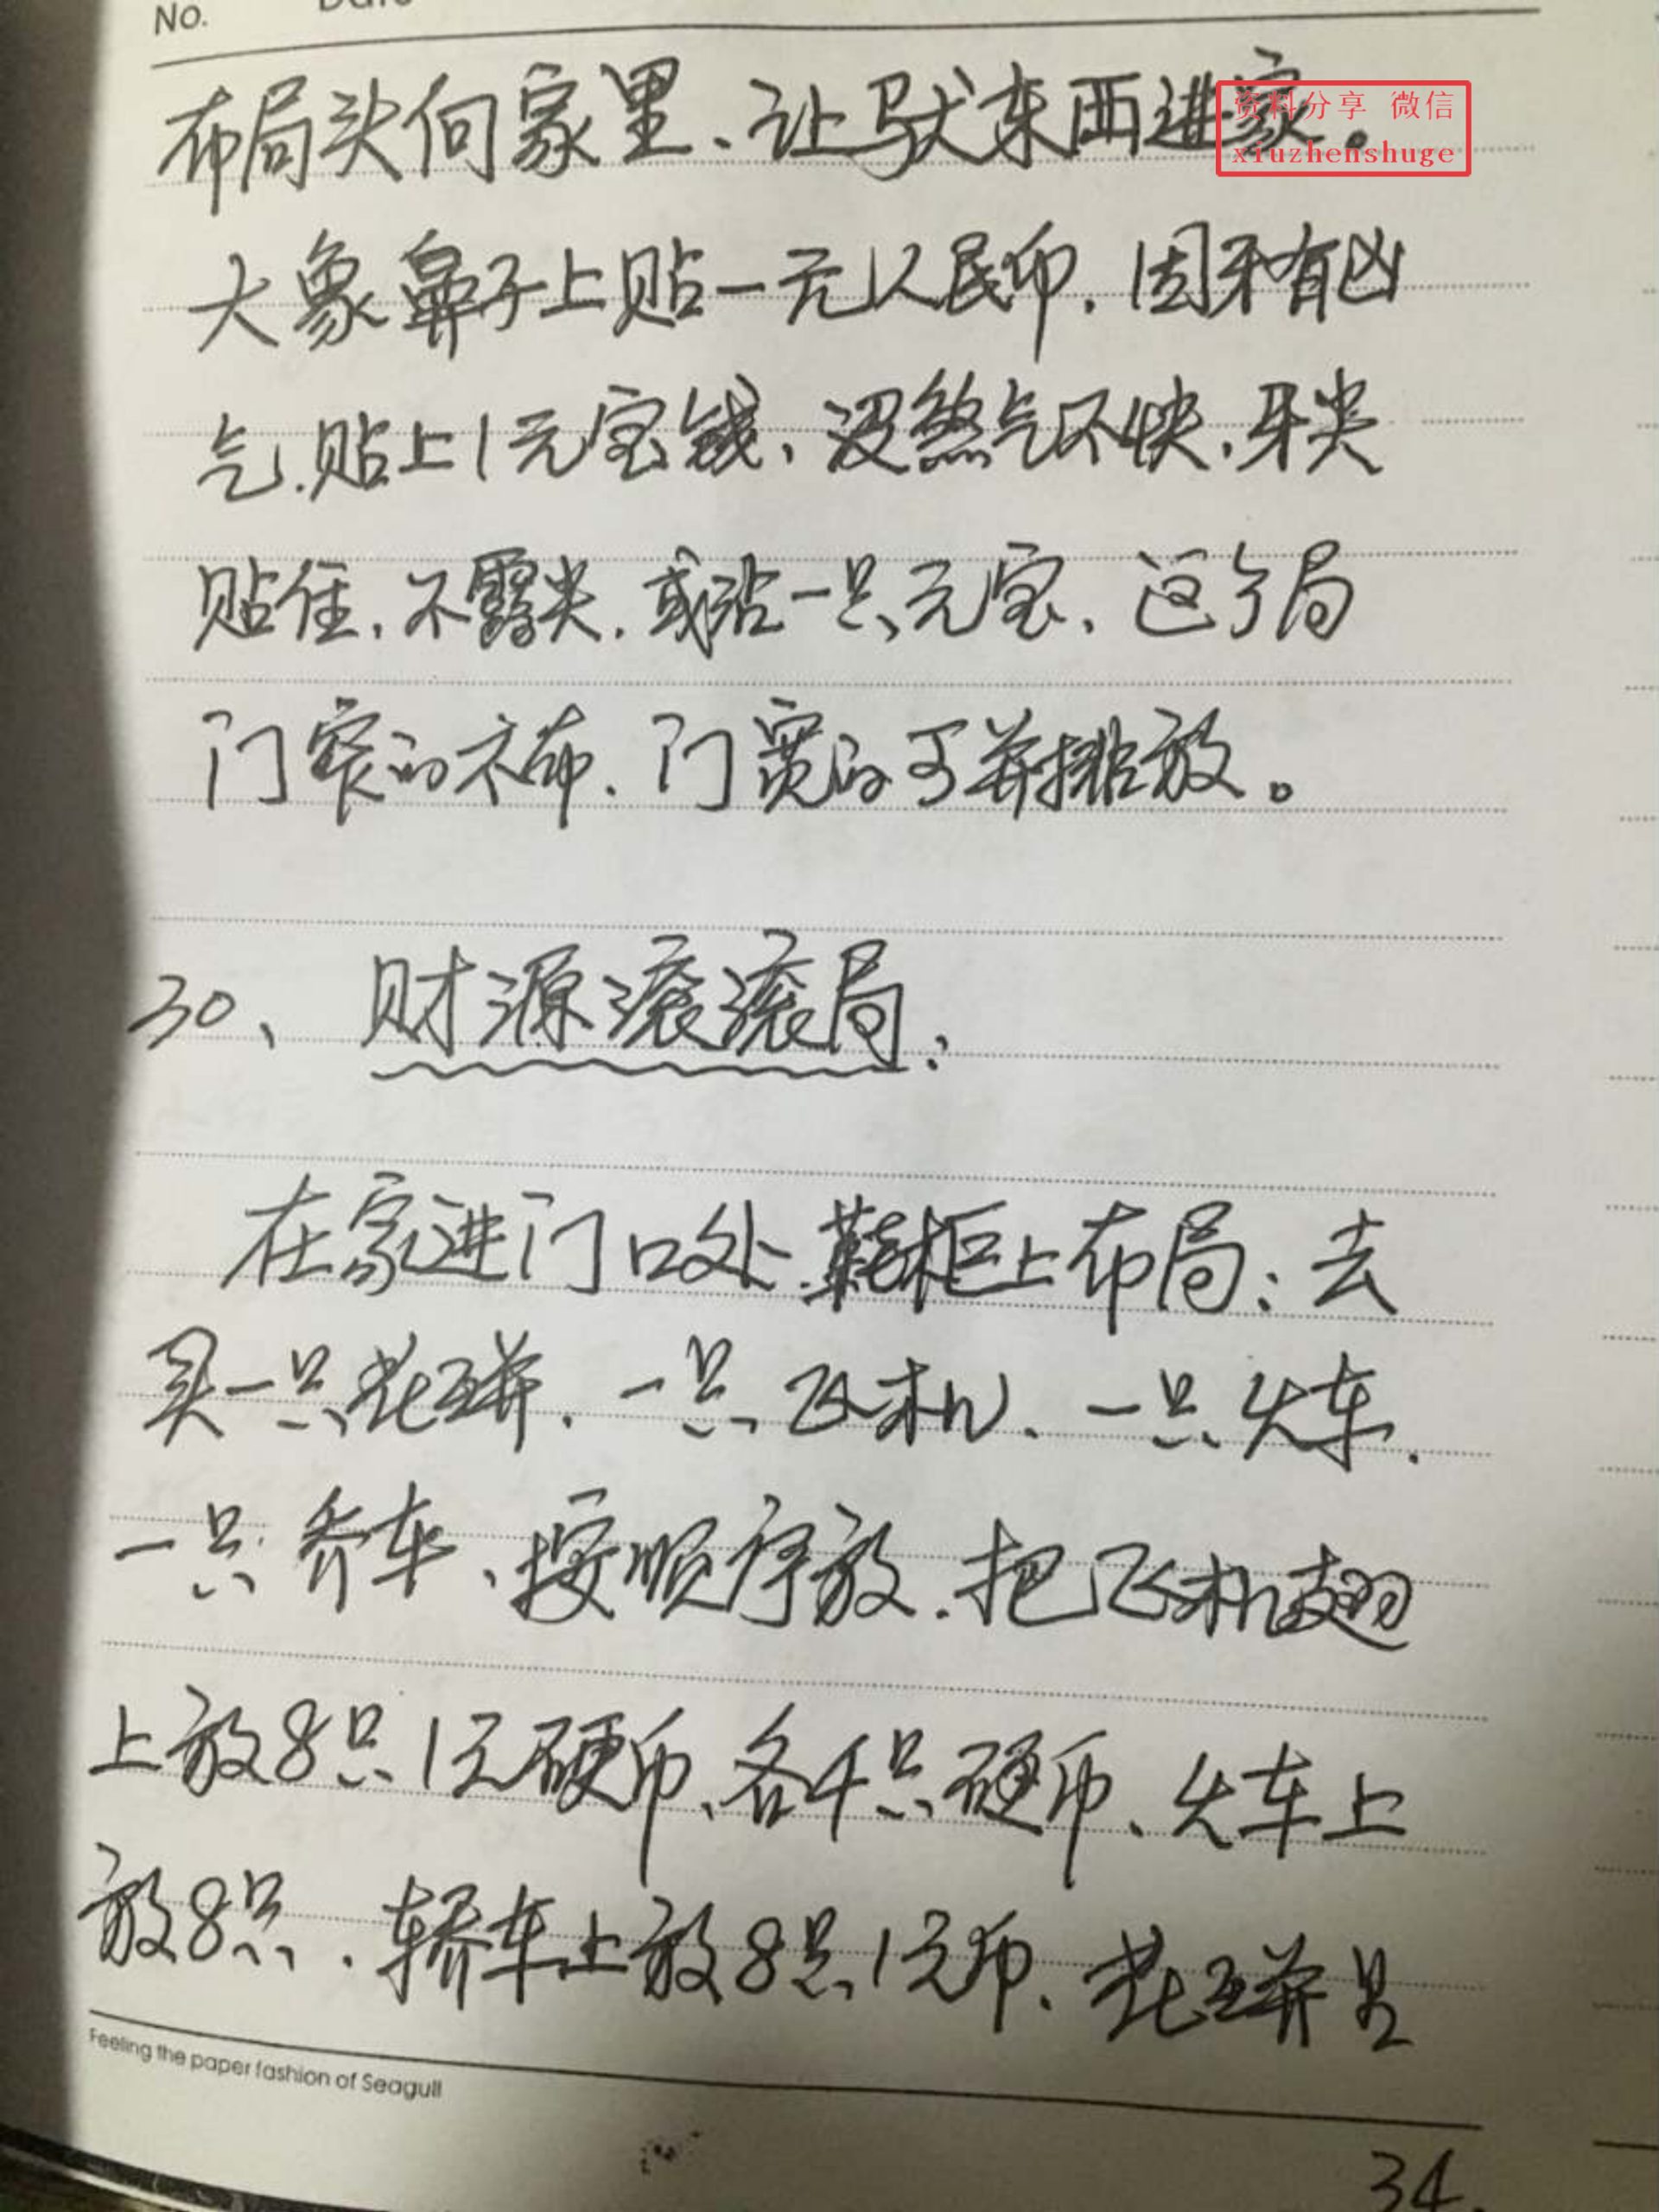 No. Date
布局头向家里、让驮东西进家。
资料分享 微信
xiuzhenshuge
大象鼻子上贴一元人民币.因牙有凶
气.贴上1元宝钱、没煞气不快.牙尖
贴住.不露尖.或沾一只元宝、这个局
门窄的不布.门宽的可并排放。
30、财源滚滚局:
在家进门口处.鞋柜上布局:去
买一只花瓶.一只飞机、一只火车.
一只乔车、按顺序放.把飞机翅
上放8只1元硬币、各4只硬币、火车上
放8只.轿车上放8只1元币、花瓶里
Feeling the paper fashion of Seagull
34.